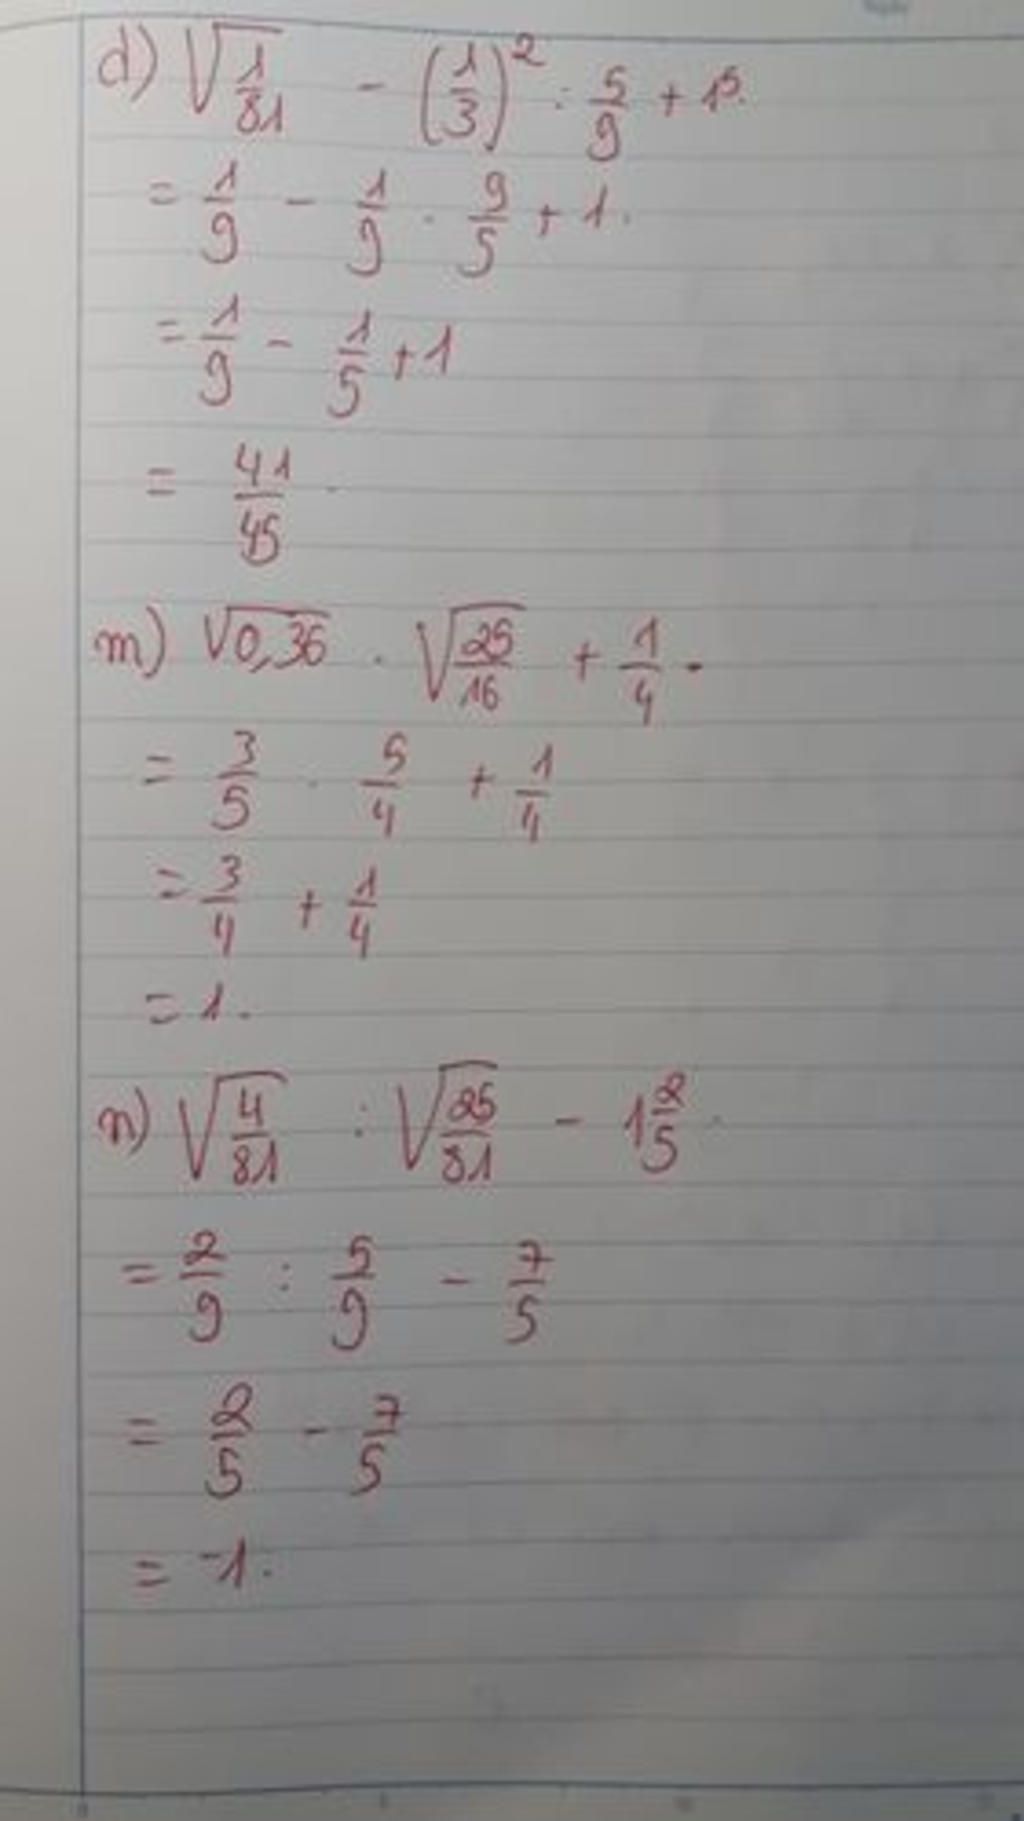 d) √(1/81) - (1/3)² : 5/9 + 1⁵.
= 1/9 - 1/9 . 9/5 + 1.
= 1/9 - 1/5 + 1
= 41/45 .
m) √0,36 . √(25/16) + 1/4 .
= 3/5 . 5/4 + 1/4
= 3/4 + 1/4
= 1.
n) √(4/81) : √(25/81) - 1 2/5 .
= 2/9 : 5/9 - 7/5
= 2/5 - 7/5
= -1.